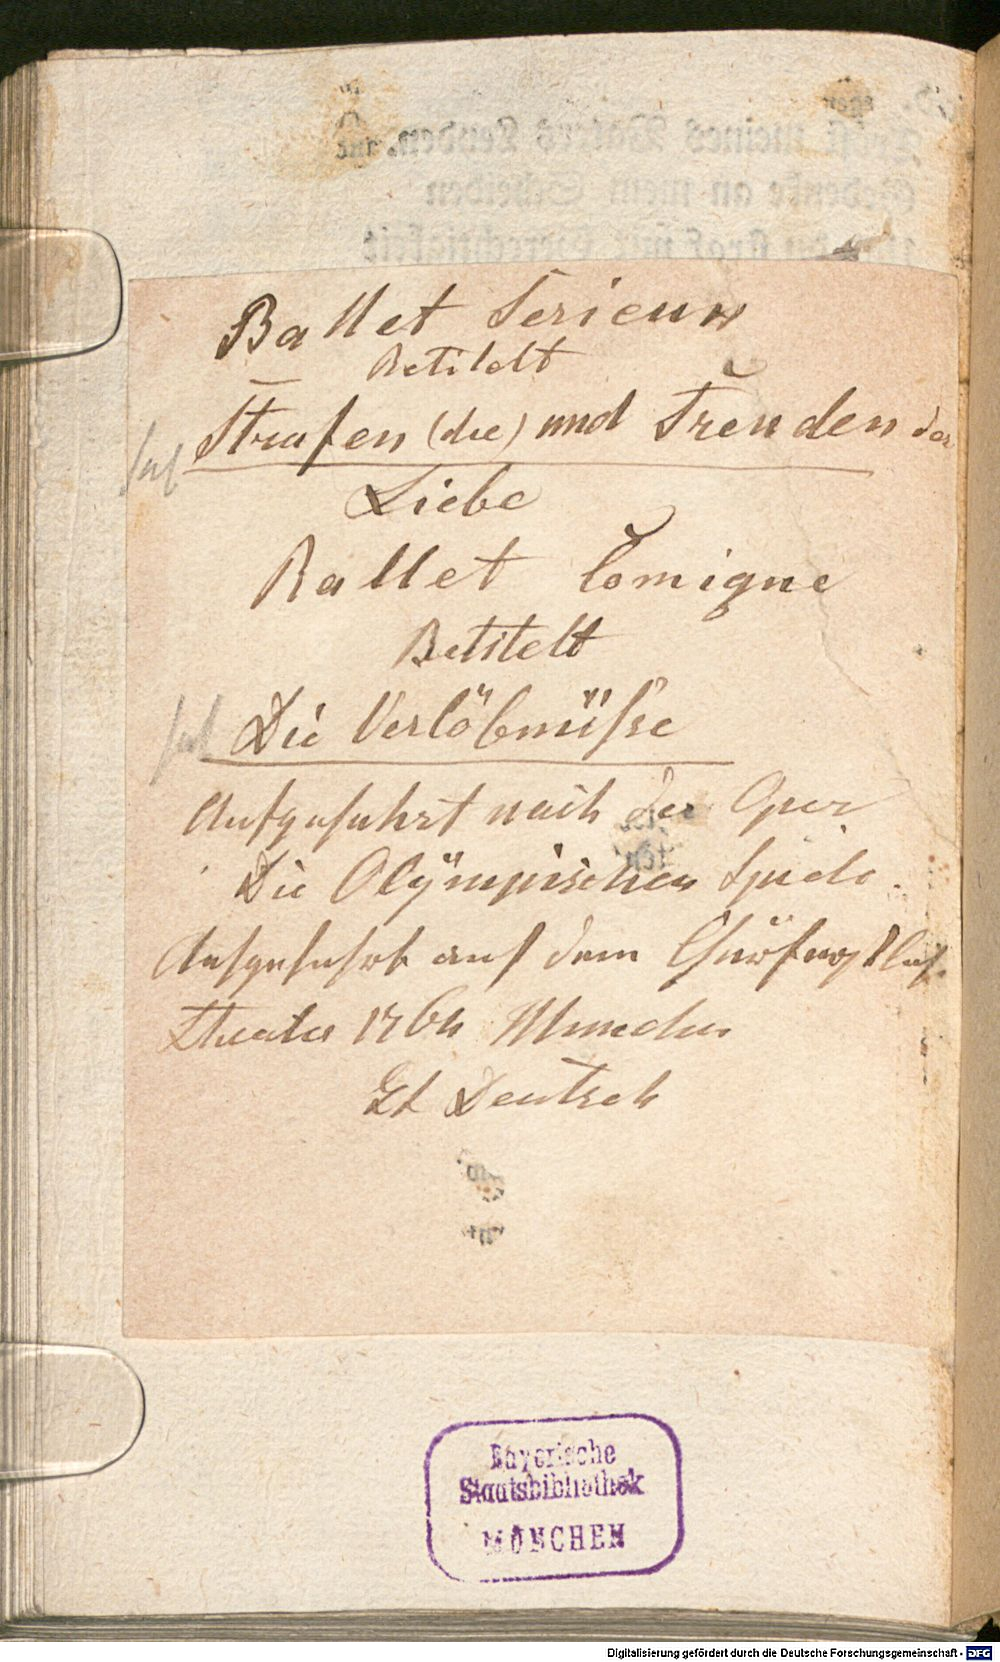 Ballet Serieux
Betitelt
Strafen (die) und Freuden der
Liebe
Ballet Comique
Betitelt
Die Verlöbnüße
Aufgefuhrt nach der Oper
Die Olÿmpischen Spiele.
Aufgefuhrt auf dem Churfürstlich.
Theater 1764 München
Deutsch
Bayerische
Staatsbibliothek
MÜNCHEN
Digitalisierung gefördert durch die Deutsche Forschungsgemeinschaft - DFG